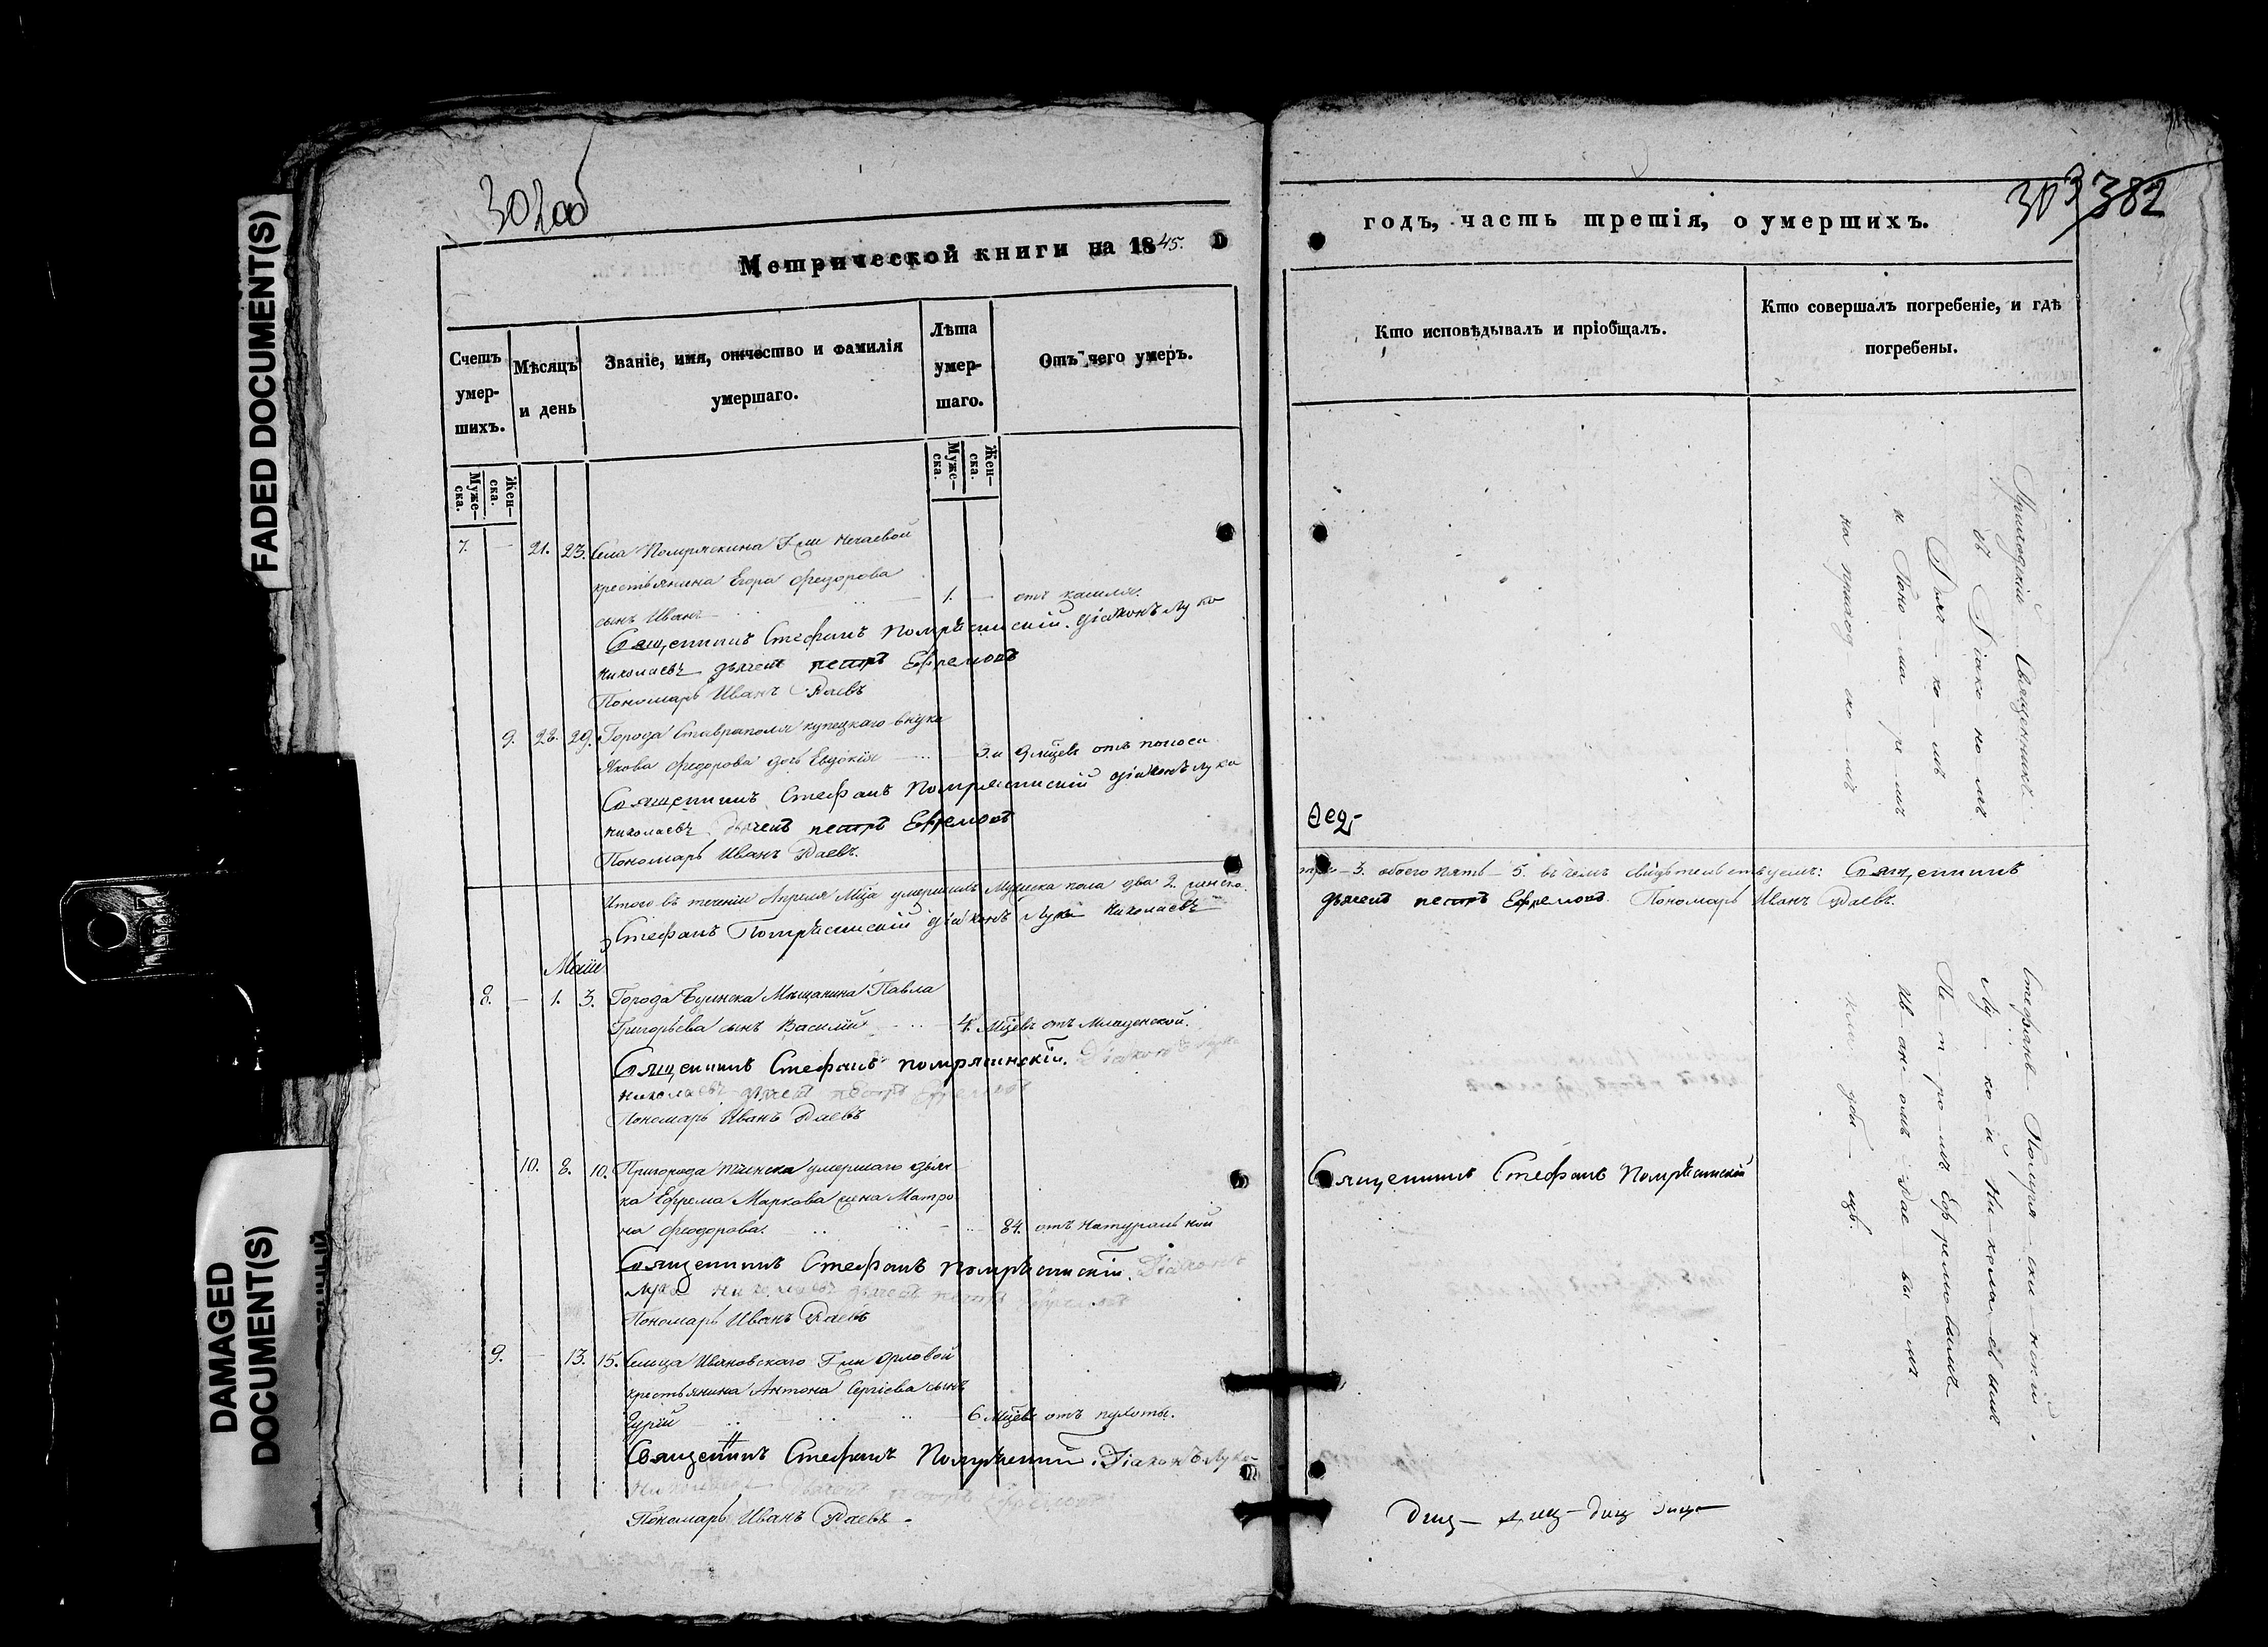 302 об
Метрической книги на 1845.
Счетъ умер- шихъ.
Мѣсяцъ и день
Званіе, имя, отчество и фамилія умершаго.
Лѣта умер- шаго.
Отъ чего умеръ.
Муже- ска.
Жен- ска.
Муже- ска.
Жен- ска.
7. — 21. 23. Села Помряскина Гжи Нечаевой
крестьянина Егора Федорова
сынъ Иванъ 1. — отъ кашля.
Священникъ Стефанъ Помряскинскій. Діаконъ Лука
Николаевъ дьячекъ Петръ Ефремовъ
Пономарь Иванъ Раевъ
9. 28. 29. Города Ставрополя купецкаго внука
Якова Федорова дочь Евдокія 3. и 9 мцевъ отъ поноса
Священникъ Стефанъ Помряскинскій Діаконъ Лука
Николаевъ дьячекъ Петръ Ефремовъ
Пономарь Иванъ Раевъ.
Итого въ теченіи Апреля Мца умершихъ Мужеска пола два 2. женска
Стефанъ Помряскинскій Діаконъ Лука Николаевъ
Маій
8. — 1. 3. Города Буинска Мещанина Павла
Григорьева сынъ Василій 4. Мцевъ отъ Младенской.
Священникъ Стефанъ Помряскинскій. Діаконъ Лука
Николаевъ дьячекъ Петръ Ефремовъ
Пономарь Иванъ Раевъ
10. 8. 10. Пригорода Тіинска умершаго дьяч
ка Ефрема Маркова жена Матро
на Феодорова. 84. отъ Натуральной
Священникъ Стефанъ Помряскинскій. Діаконъ
Лука Николаевъ дьячекъ Петръ Ефремовъ
Пономарь Иванъ Раевъ
9. — 13. 15. Сельца Ивановскаго Гжи Орловой
крестьянина Антона Сергіева сынъ
Гурій 6 Мцевъ отъ
Священникъ Стефанъ Діаконъ Лука
Николаевъ дьячекъ Петръ Ефремовъ
Пономарь Иванъ Раевъ.
303 382
годъ, часть третія, о умершихъ.
Кто исповѣдывалъ и пріобщалъ.
Кто совершалъ погребеніе, и гдѣ погребены.
Приходскій Священникъ
съ Діако но мъ
Дьяч ко мъ
и Поно ма ре мъ
на приход ско мъ
три — 3. обоего пять — 5. въ чемъ свидѣтельствуемъ: Священникъ
дьячекъ Петръ Ефремовъ. Пономарь Иванъ Раевъ.
Стефанъ Помря ски нскій
Лу ко й Ни кола евымъ
Пе т ро мъ Ефремовымъ
Ив ан омъ Рае вы мъ
кла дби щѣ.
Священникъ Стефанъ Помряскинскій
FADED DOCUMENT(S)
DAMAGED DOCUMENT(S)